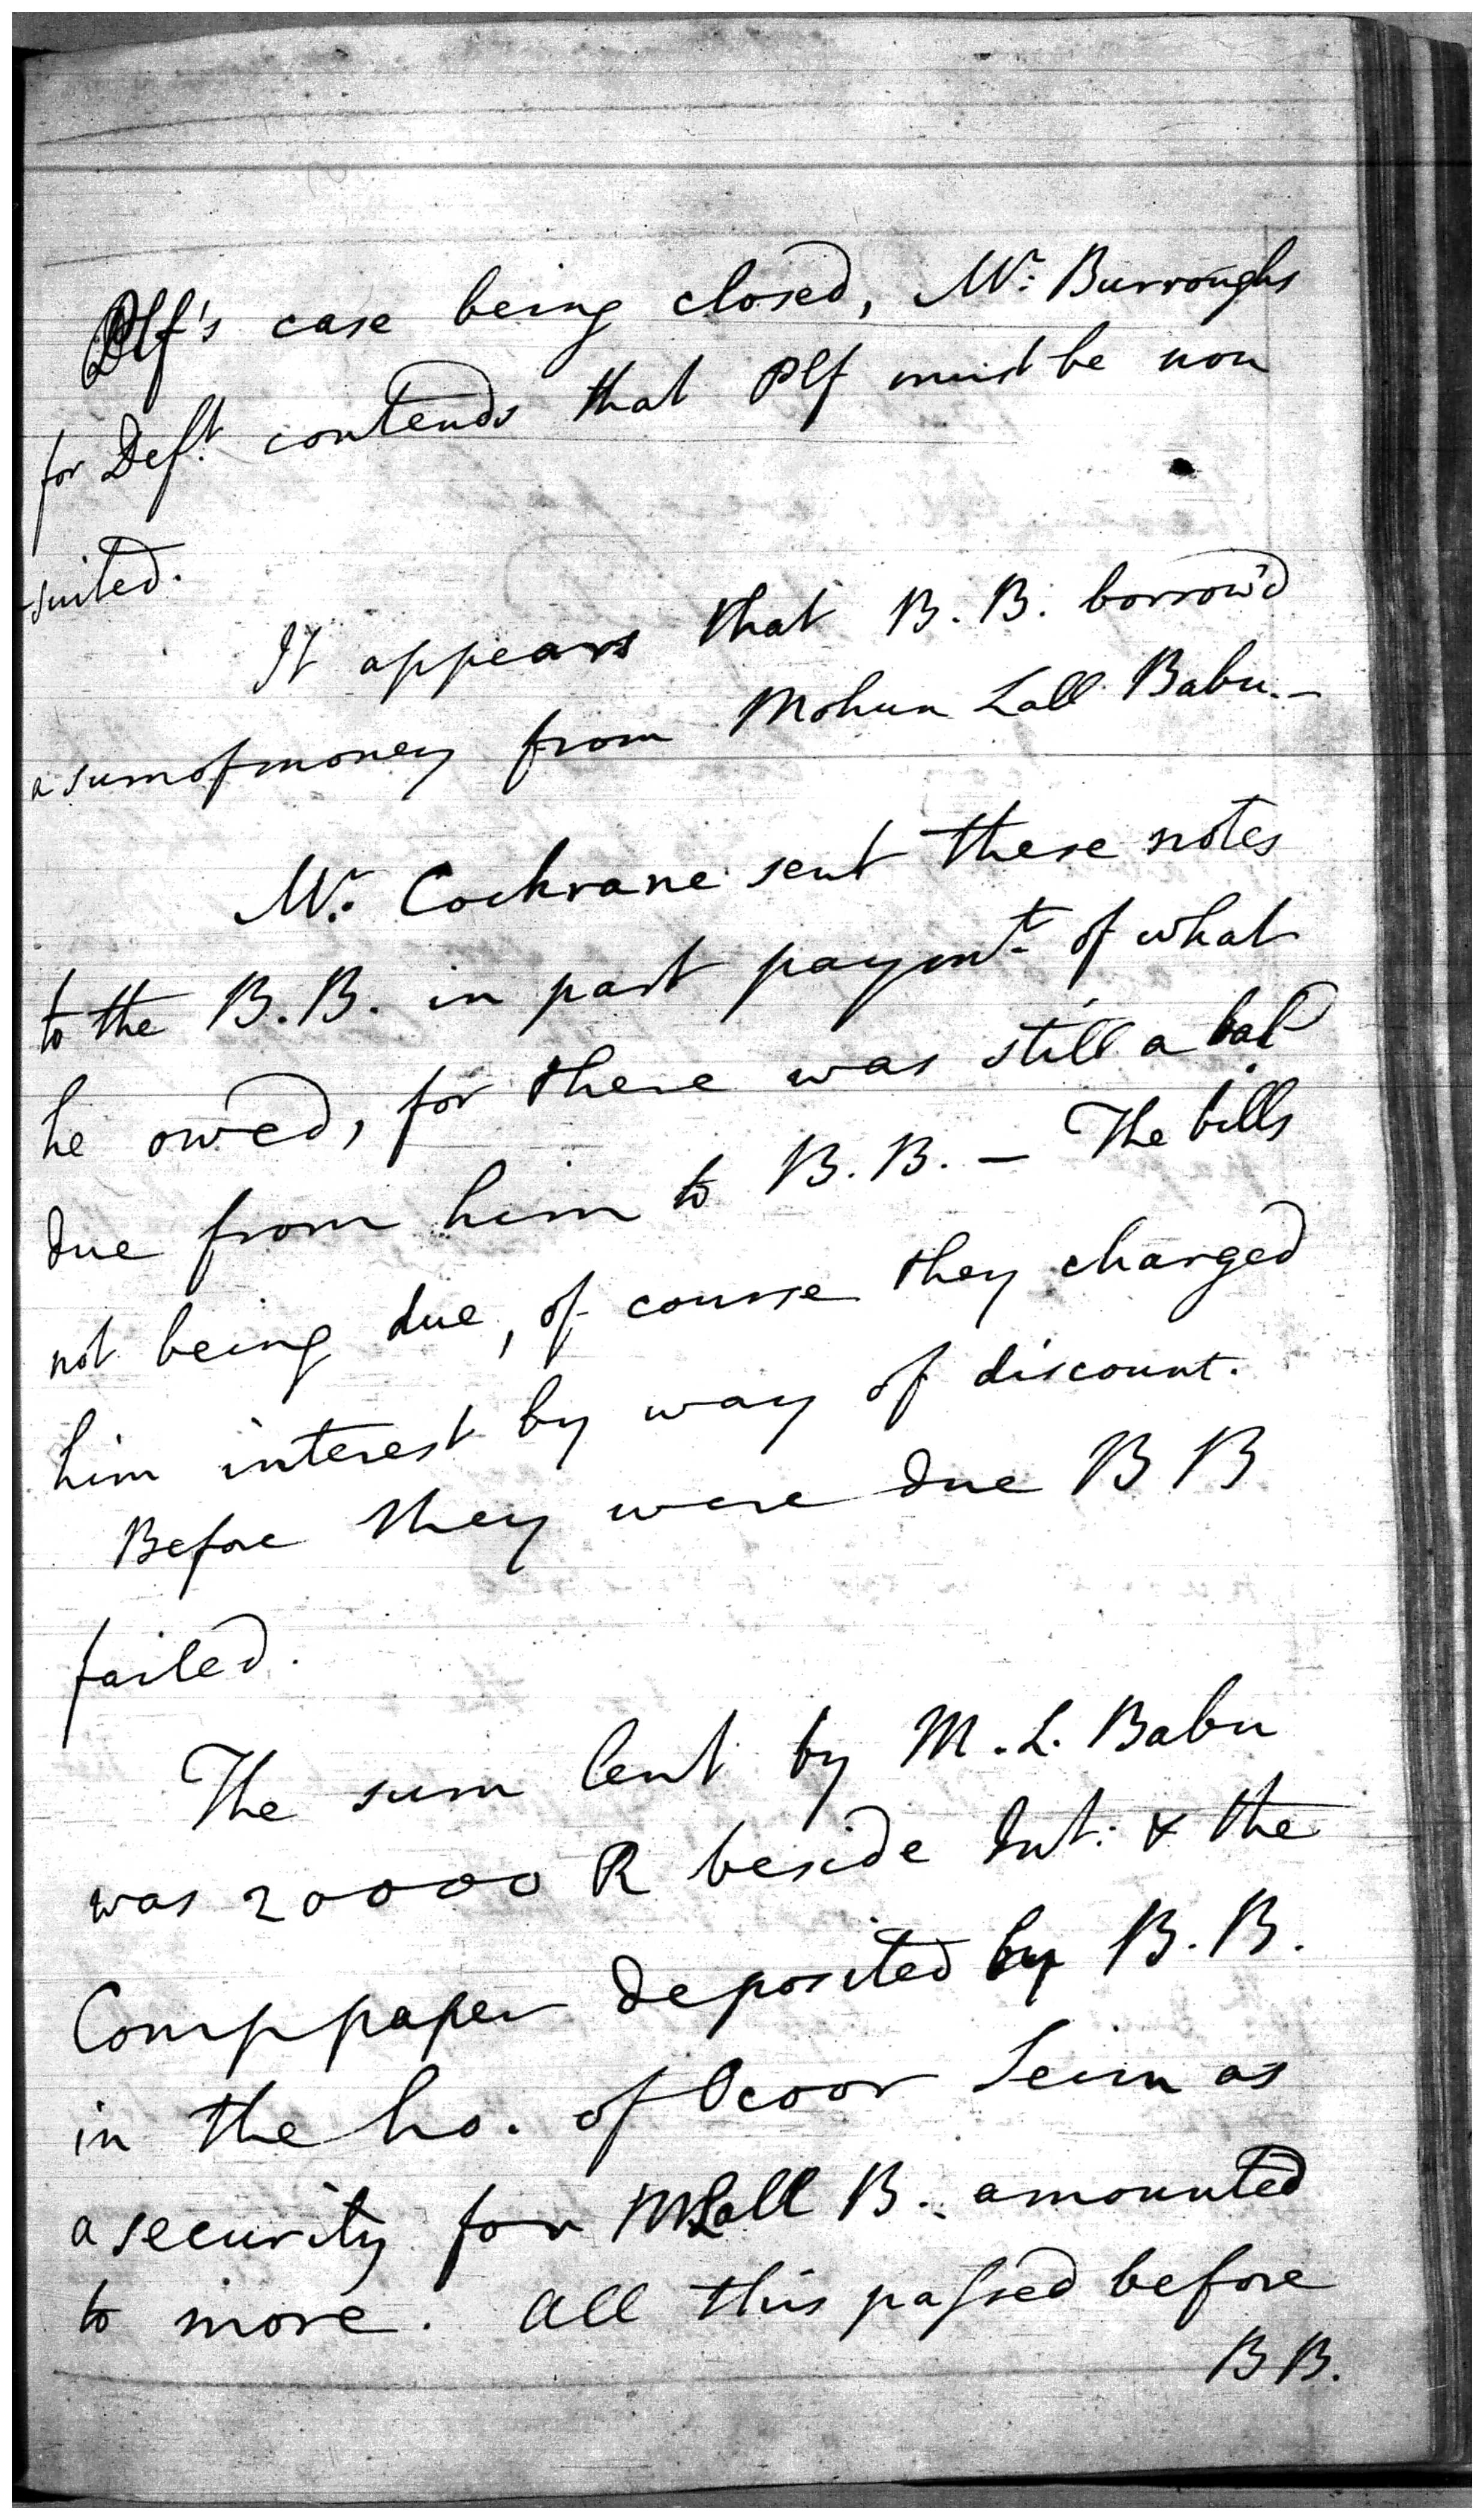 Plf's case being closed, Mr. Burroughs
for Deft. contends that Plf must be non
-suited.
It appears that B. B. borrow'd
a sum of money from Mohun Lall Babu. -
Mr. Cochrane sent these notes
to the B. B. in part paymt. of what
he owed, for there was still a bal
due from him to B. B. - The bills
not being due, of course they charged
him interest by way of discount.
Before they were due B B
failed.
The sum lent by M. L. Babu
was 20000 R beside Int: & the
Comp paper deposited by B. B.
in the ho. of Seim as
a security for MLall B. amounted
to more. All this passed before
B B.